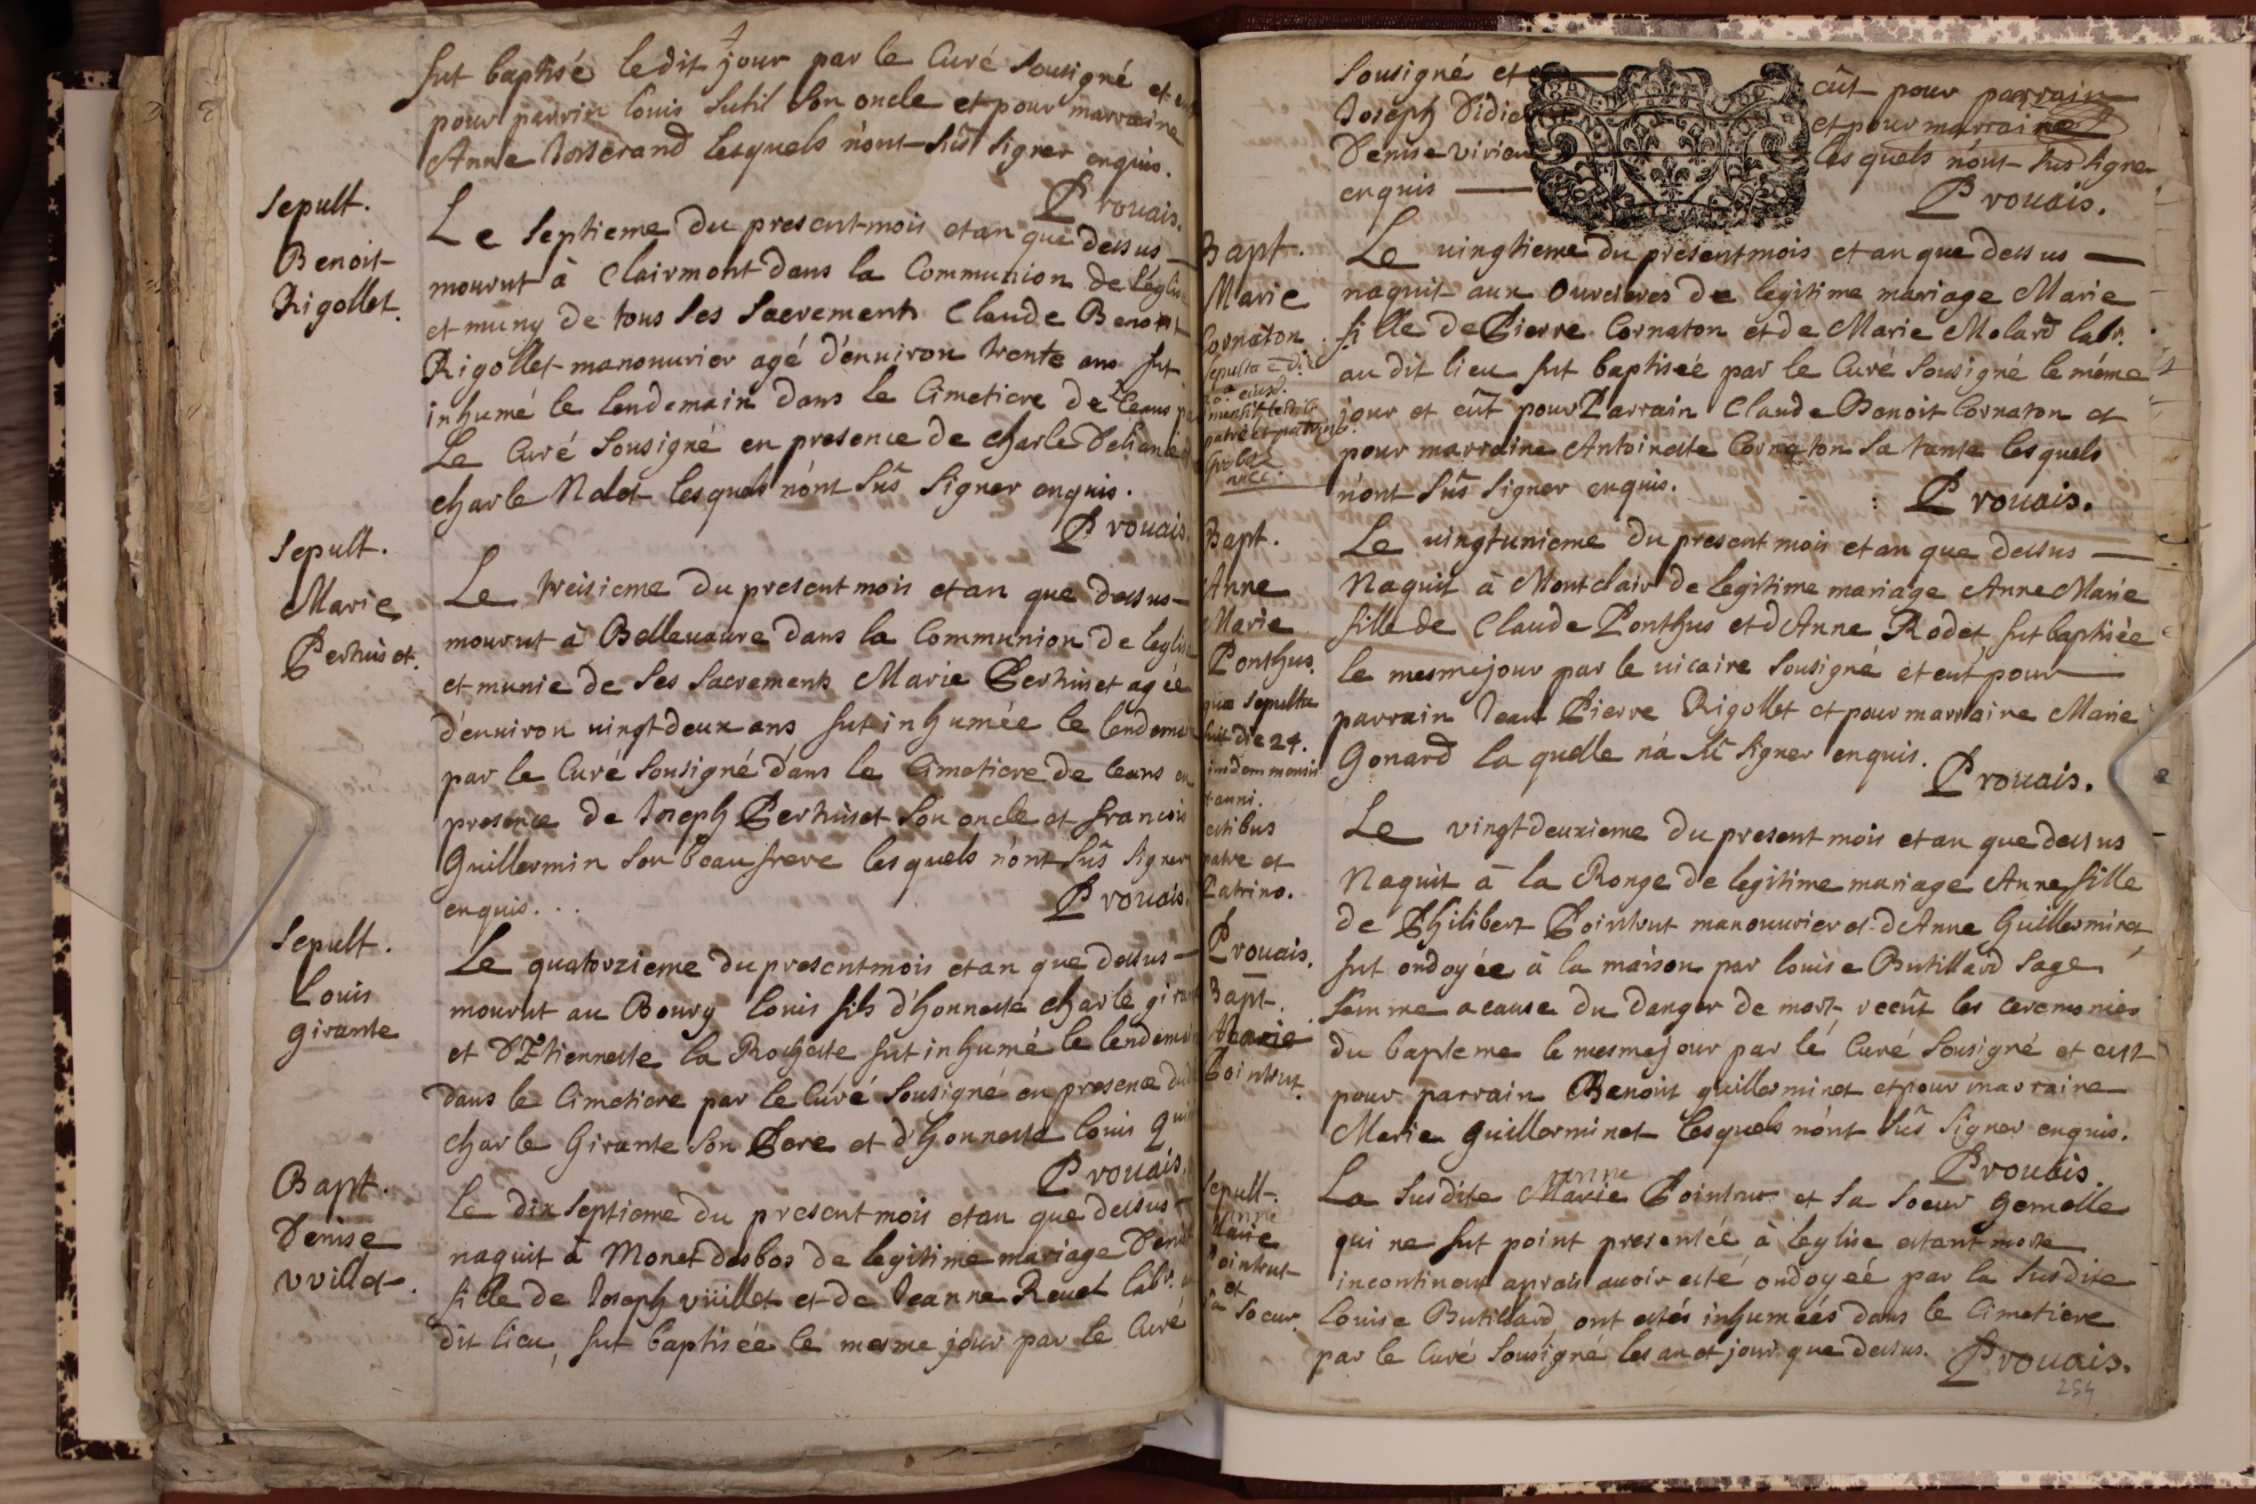 fut baptisé ledit jour par le Curé sousigné et eut
pour parrin louis sutil son oncle et pour marraine
Anne Josserand lesquels n'ont sûs signer enquis.
Prouais.
Sepult.
Benoit
Rigollet.
Le septieme du present mois et an que dessus
mourut à Clairmont dans la Communion de l'eglise
et muny de tous ses sacrements Claude Benoit
Rigollet manouurier agé d'enuiron trente ans fut
inhumé le lendemain dans le Cimetiere de ceans par
Le Curé sousigné en presence de charle
charle Nalet lesquels n'ont sûs signer enquis.
Prouais.
Sepult.
Marie
Perhuset.
Le treisieme du present mois et an que dessus
mourut à Belleuaure dans la Communion de l'eglise
et munie de ses sacrements Marie Perhuset agée
d'enuiron uingt deux ans fut inhumée le lendemain
par le Curé sousigné dans le Cimetiere de ceans en
presence de Joseph Perhuset son oncle et francois
Guillermin son beau frere lesquels n'ont sûs signer
enquis...
Prouais.
Sepult.
Louis
girante
Le quatorzieme du present mois et an que dessus
mourut au Bourg louis fils d'honneste charle girante
et d'Etiennette la Rochette fut inhumé le lendemain
dans le Cimetiere par le Curé sousigné en presence dudit
charle Girante son Pere et d'honneste louis
Prouais.
Bapt.
Denise
vvillet.
Le dix septieme du present mois et an que dessus
naquit à Monet desbos de legitime mariage Denise
fille de Joseph vüillet et de Jeanne Reuel labr. au
dit lieu, fut baptisée le mesme jour par le Curé
sousigné et eût pour parrain
Joseph Didier et pour marraine
Denise lesquels n'ont sûs signer
enquis
Prouais.
Bapt.
Marie
Cornaton
sepulta
Le uingtieme du present mois et an que dessus
naquit aux Ourcieres de legitime mariage Marie
fille de Pierre Cornaton et de Marie Molard labr.
au dit lieu fut baptiséé par le Curé sousigné le même
jour et eût pour Parrain Claude Benoit Cornaton et
pour marraine Antoinette Cornaton sa tante lesquels
n'ont sûs signer enquis.
Prouais.
Bapt.
Anne
Marie
Ponthus.
quæ sepulta
fuit die 24.
eiusdem mensis
et anni.
testibus
patre et
Patrino.
Prouais.
Le uingtunieme du present mois et an que dessus
Naquit à Montclair de legitime mariage Anne Marie
fille de Claude Ponthus et d'Anne Rodet, fut baptisée
le mesme jour par le uicaire sousigné et eut pour
parrain Jean Pierre Rigollet et pour marraine Marie
Gonard la quelle n'a sû signer enquis.
Prouais.
Bapt.
Marie
Pointrut.
Le vingtdeuxieme du present mois et an que dessus
Naquit à la Ronge de legitime mariage Anne fille
de Philibert Pointrut manouurier et d'Anne Guillerminet
fut ondoyée à la maison par louise Butillard sage
femme acause du danger de mort, reçût les ceremonies
du bapteme le mesme jour par le Curé sousigné et eust
pour parrain Benoit guillerminet et pour marraine
Marie guillerminet lesquels n'ont sûs signer enquis.
Prouais.
Sepult.
anne
Marie
Pointrut
et
sa soeur.
anne
La susdite Marie Pointrut et sa soeur gemelle
qui ne fut point presentéé à l'eglise etant morte
incontinent aprais auoir esté ondoyéé par la susdite
Louise Butillard ont estés inhuméés dans le Cimetiere
par le Curé sousigné les an et jour que dessus.
Prouais.
254